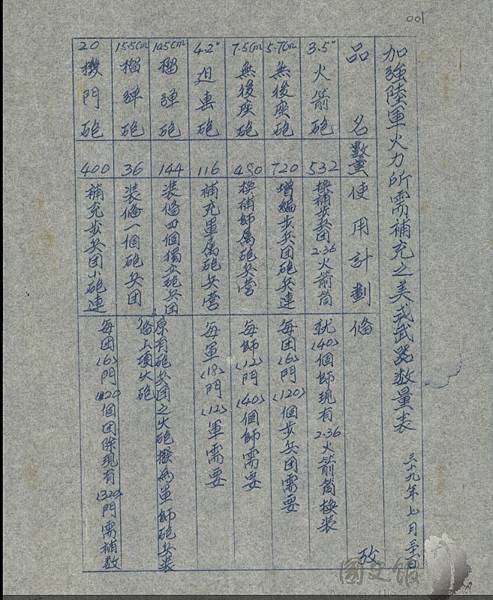 001
加強陸軍火力所需補充之美式武器數量表
三十九年七月三十一日
品名 數量 使用計劃 備攷
3.5" 火箭砲 532 換補步兵团2.36火箭筒 就(40)個師現有2.36火箭筒換裝
5.7cm 無後座砲 720 增編步兵团砲兵連 每团(6)門(120)個步兵团需要
7.5cm 無後座砲 480 換補師属砲兵營 每師(12)門(40)個師需要
4.2" 迫击砲 116 補充軍属砲兵營 每軍(18)門(12)軍需要
10.5cm 榴弹砲 144 装備四個獨立砲兵团 原有砲兵团之火砲撥為軍師砲兵装備上項火砲
15.5cm 榴弹砲 36 装備一個砲兵团
20 機門砲 400 補充步兵团小砲連 每团(6)門(120)個团除現有(320)門需補数
國史館